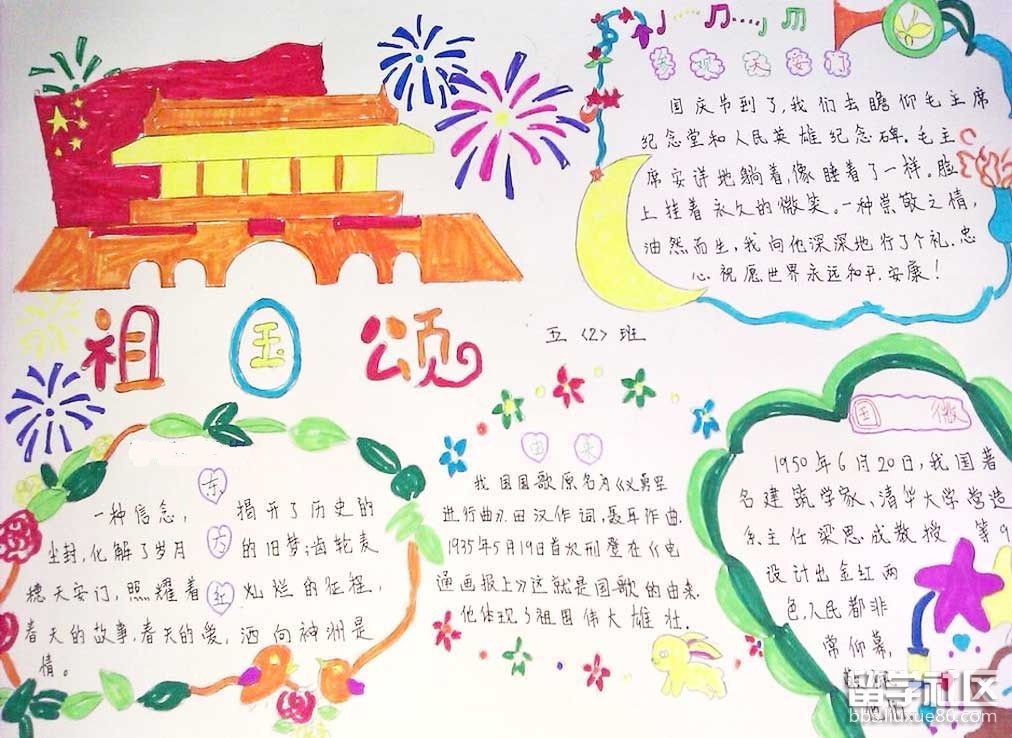 祖国颂
五〈2〉班
参观天安门
国庆节到了,我们去瞻仰毛主席
纪念堂和人民英雄纪念碑.毛主
席安详地躺着,像睡着了一样。脸
上挂着永久的微笑。一种崇敬之情,
油然而生,我向他深深地行了个礼.忠
心祝愿世界永远和平.安康!
东方红
一种信念, 揭开了历史的
尘封,化解了岁月 的旧梦;齿轮麦
穗天安门,照耀着 灿烂的征程,
春天的故事,春天的爱,洒向神洲是
情。
由来
我国国歌原名为《义勇军
进行曲》.田汉作词,聂耳作曲.
1935年5月19日首次刑登在《电
通画报上》这就是国歌的由来.
他体现了祖国伟大雄壮.
国徽
1950年6月20日,我国著
名建筑学家、清华大学营造
系主任梁思成教授 等9
设计出金红两
色,人民都非
常仰慕,
留学社区
bbs.liuxue86.com